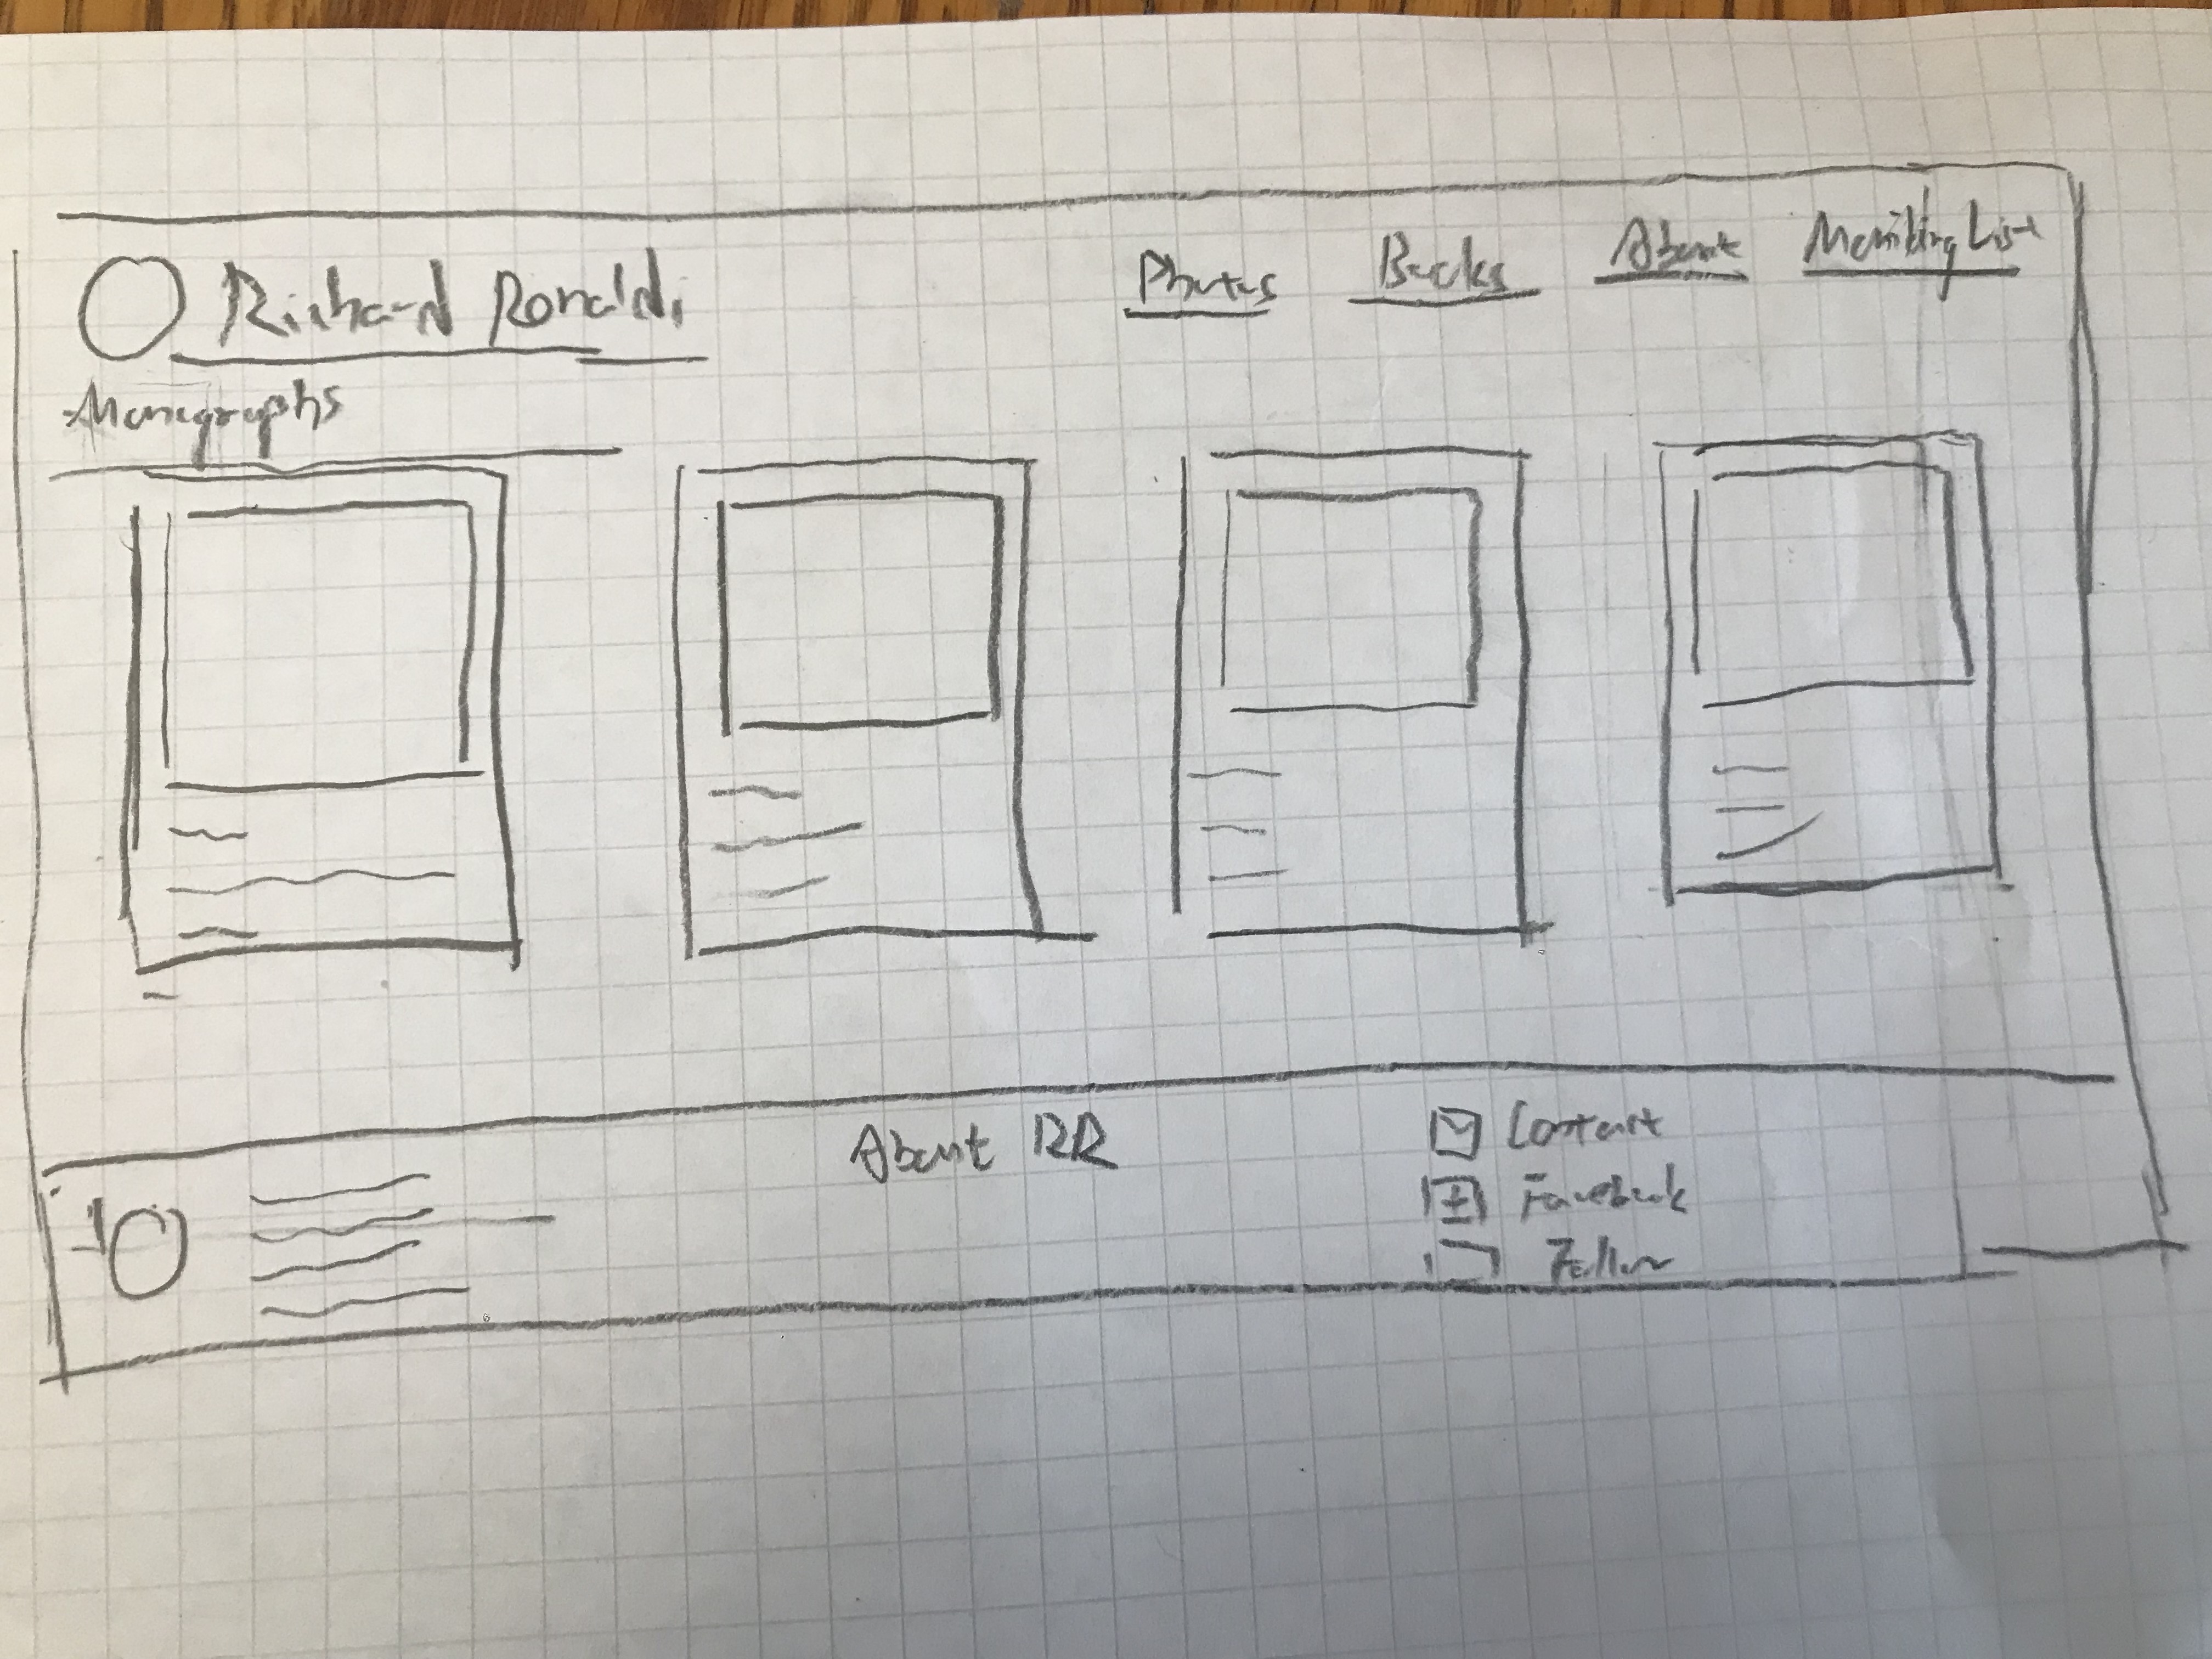 Richard Ronaldi
Photos Books About Mailing List
Monographs
About RR
Contact
Facebook
Follow